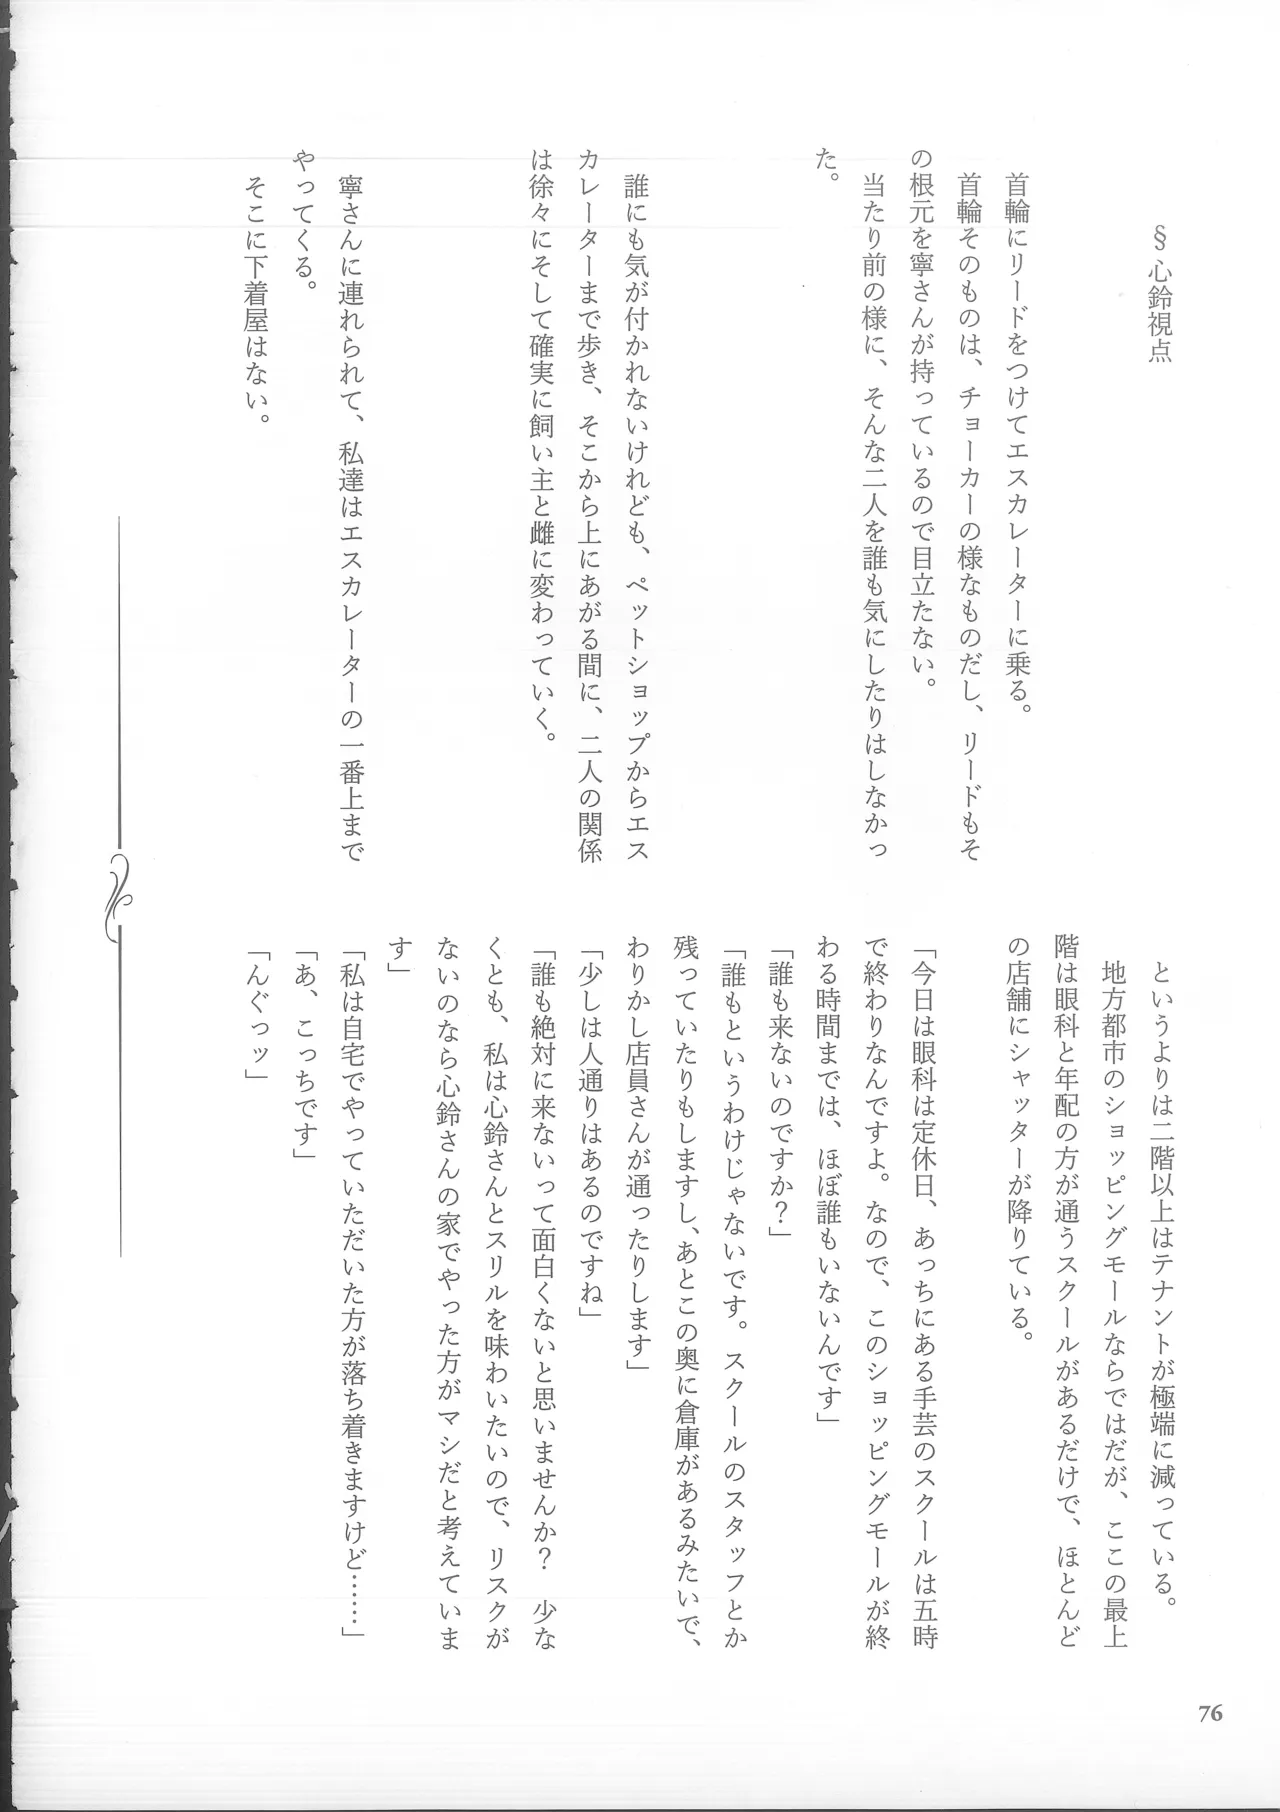 §心鈴視点
首輪にリードをつけてエスカレーターに乗る。
首輪そのものは、チョーカーの様なものだし、リードもそ
の根元を寧さんが持っているので目立たない。
当たり前の様に、そんな二人を誰も気にしたりはしなかっ
た。
誰にも気が付かれないけれども、ペットショップからエス
カレーターまで歩き、そこから上にあがる間に、二人の関係
は徐々にそして確実に飼い主と雌に変わっていく。
寧さんに連れられて、私達はエスカレーターの一番上まで
やってくる。
そこに下着屋はない。
というよりは二階以上はテナントが極端に減っている。
地方都市のショッピングモールならではだが、ここの最上
階は眼科と年配の方が通うスクールがあるだけで、ほとんど
の店舗にシャッターが降りている。
「今日は眼科は定休日、あっちにある手芸のスクールは五時
で終わりなんですよ。なので、このショッピングモールが終
わる時間までは、ほぼ誰もいないんです」
「誰も来ないのですか？」
「誰もというわけじゃないです。スクールのスタッフとか
残っていたりもしますし、あとこの奥に倉庫があるみたいで、
わりかし店員さんが通ったりします」
「少しは人通りはあるのですね」
「誰も絶対に来ないって面白くないと思いませんか？　少な
くとも、私は心鈴さんとスリルを味わいたいので、リスクが
ないのなら心鈴さんの家でやった方がマシだと考えていま
す」
「私は自宅でやっていただいた方が落ち着きますけど……」
「あ、こっちです」
「んぐっッ」
76